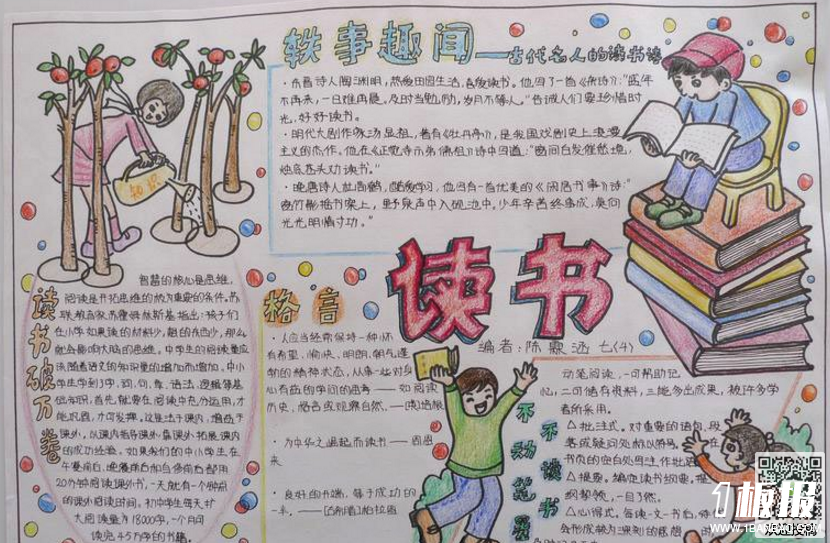 轶事趣闻——古代名人的读书诗
·东晋诗人陶渊明，热爱田园生活，喜爱读书。他写了一首《杂诗》："盛年
不再来，一日难再晨。及时当勉励，岁月不等人。"告诫人们要珍惜时
光，好好读书。
·明代大剧作家汤显祖，著有《牡丹亭》，是我国戏剧史上浪漫
主义的杰作。他在
·晚唐诗人杜荀鹤，酷爱学习，他写有一首优美的《闲居书事》诗："
窗竹影摇书案上，野泉声中入砚池中。少年辛苦终身成，莫向
光光明惰寸功。"
知识
读书
编者：陈霖涵 七(4)
读书破万卷
智慧的核心是思维，
阅读是开拓思维的极为重要的条件。苏
联教育家苏霍姆林斯基指出：孩子们
在小学如果读的材料少，
就会影响大脑的思维。中学生的阅读量应
该随着语文的知识量的增加而增加。中小
学生学到了字、词、句、章、语法、逻辑等基
础知识，首先就要在阅读中充分运用，才
能巩固，才可发挥。这是法于课内，增益于
课外，以课内指导课外，靠课外拓展课内
的成功经验。如果我们的中小学生在
午餐前后，晚餐前后和自修前后都用
20分钟阅读课外书，一天就有一个钟点
的课外阅读时间。初中学生每天扩
大阅读量为18000字，一个月可
读完45万字的书籍。
格言
·人应当经常保持一种心怀
有希望、愉快、明朗、朝气蓬
勃的精神状态，从事一些对身
心有益的学问的思考——如阅读
历史，格言或观察自然。——[英]培根
·为中华之崛起而读书——周恩
来
·良好的开端，等于成功的
一半。——[古希腊]柏拉图
不动笔墨
不读书
动笔阅读，一可帮助记
心，二可储存资料，三能多出成果，被许多学
者所采用。
△批注式。对重要的语句、段
落或疑问处标以符号，在
书页的空白处写注作批
△提要。编定读书纲要，提
纲挈领，一目了然。
△心得式。每读一文一书后，
会形成较为深刻的感想，而
1板报
WWW.1BANBAO.COM